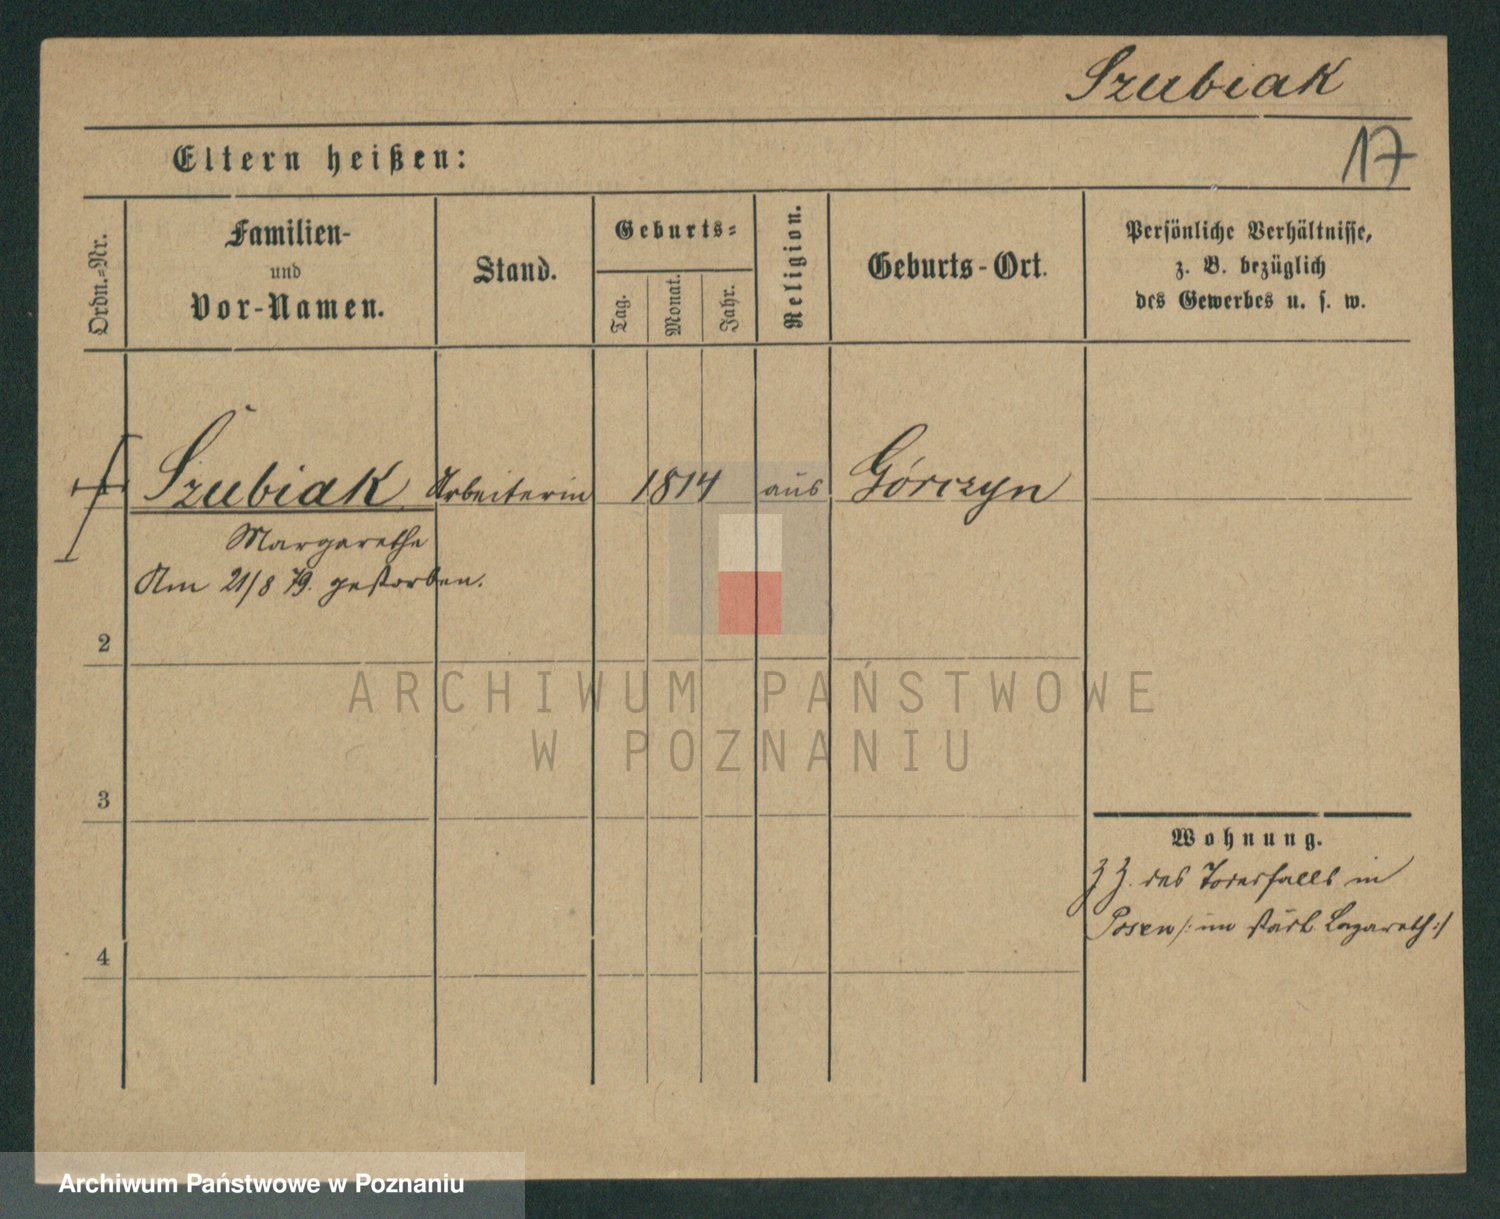 Szubiak
17
Eltern heißen:
Ordn.-Nr.
Familien-
und
Vor-Namen.
Stand.
Geburts-
Tag.
Monat.
Jahr.
Religion.
Geburts-Ort.
Persönliche Verhältnisse,
z. B. bezüglich
des Gewerbes u. s. w.
Szubiak Arbeiterin 1814 aus Górczyn
Margarethe
Am 21/8 79. gestorben.
2
3
4
Wohnung.
z Z. des Todesfalls in
Posen /: im städt. Lazareth :/
ARCHIWUM PAŃSTWOWE
W POZNANIU
Archiwum Państwowe w Poznaniu